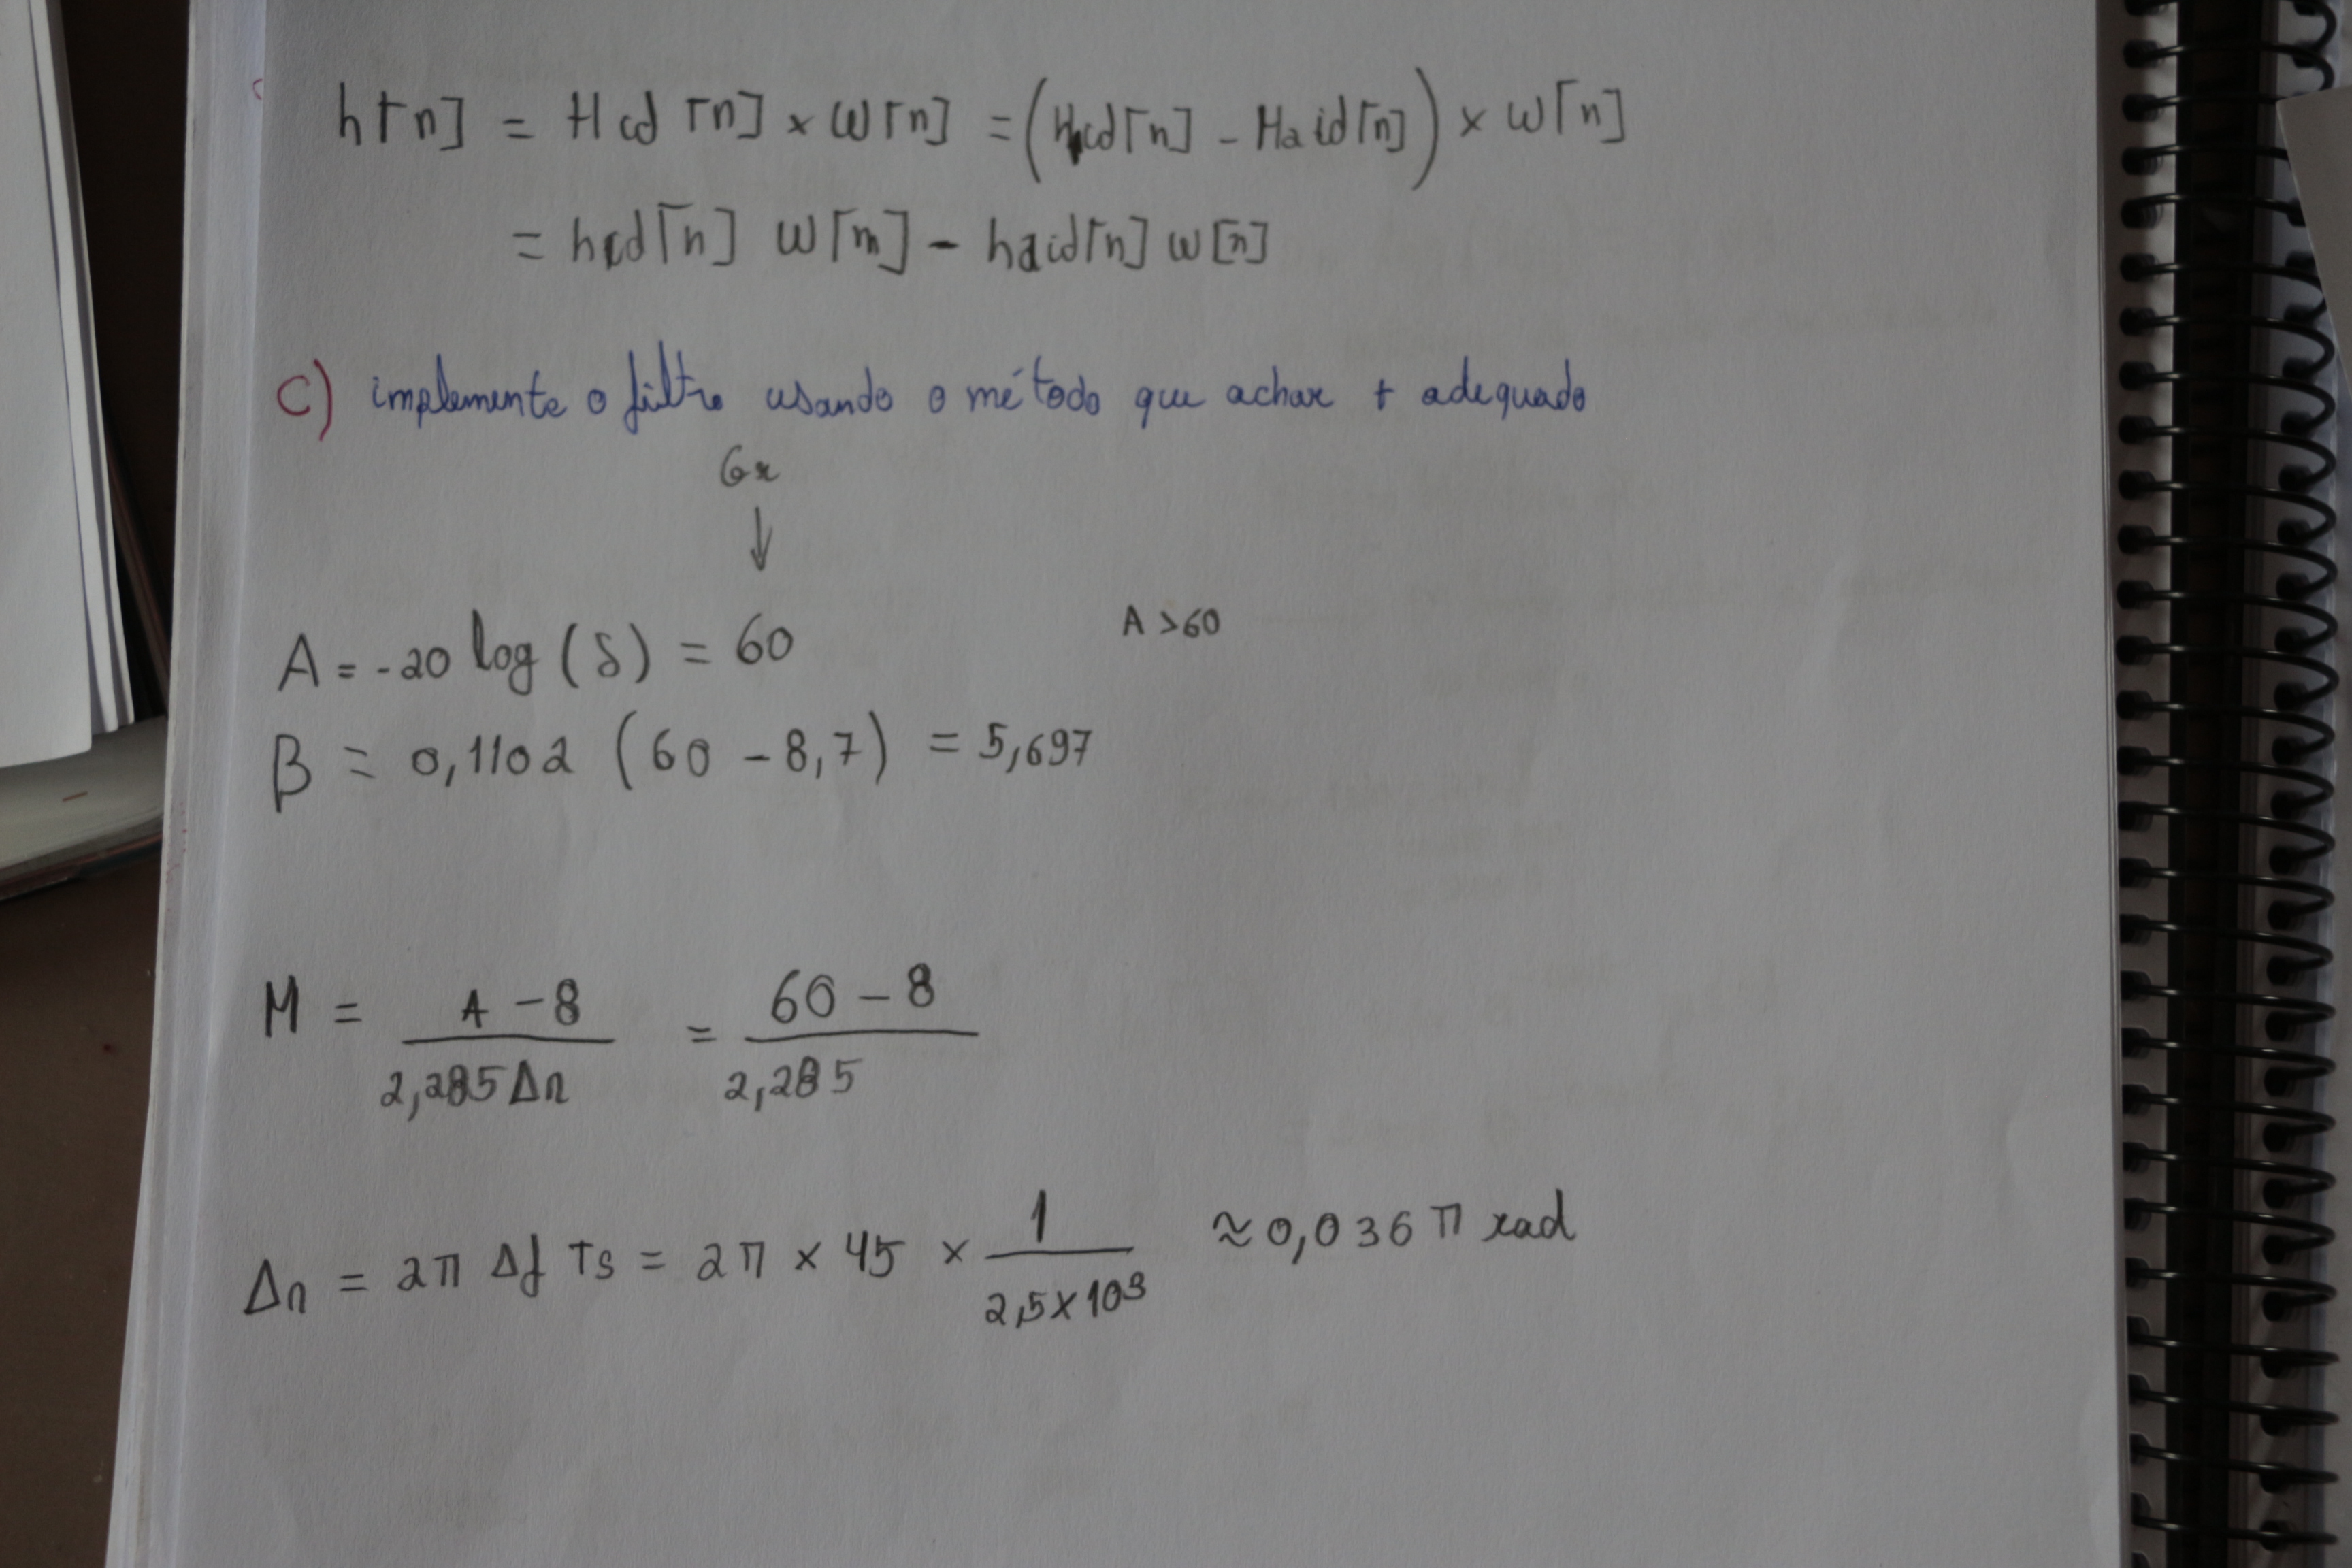 h[n] = Hid [n] × W[n] = (Hid[n] - Haid[n]) × W[n]
= hid[n] W[n] - haid[n] w[n]
c) implemente o filtro usando o método que achar + adequado
↓
A = -20 log (δ) = 60 A >60
β = 0,1102 (60 - 8,7) = 5,697
M = A - 8 / 2,285 ΔΩ = 60 - 8 / 2,285
ΔΩ = 2π Δf Ts = 2π × 45 × 1 / 2,5×10³ ≈ 0,036 π rad